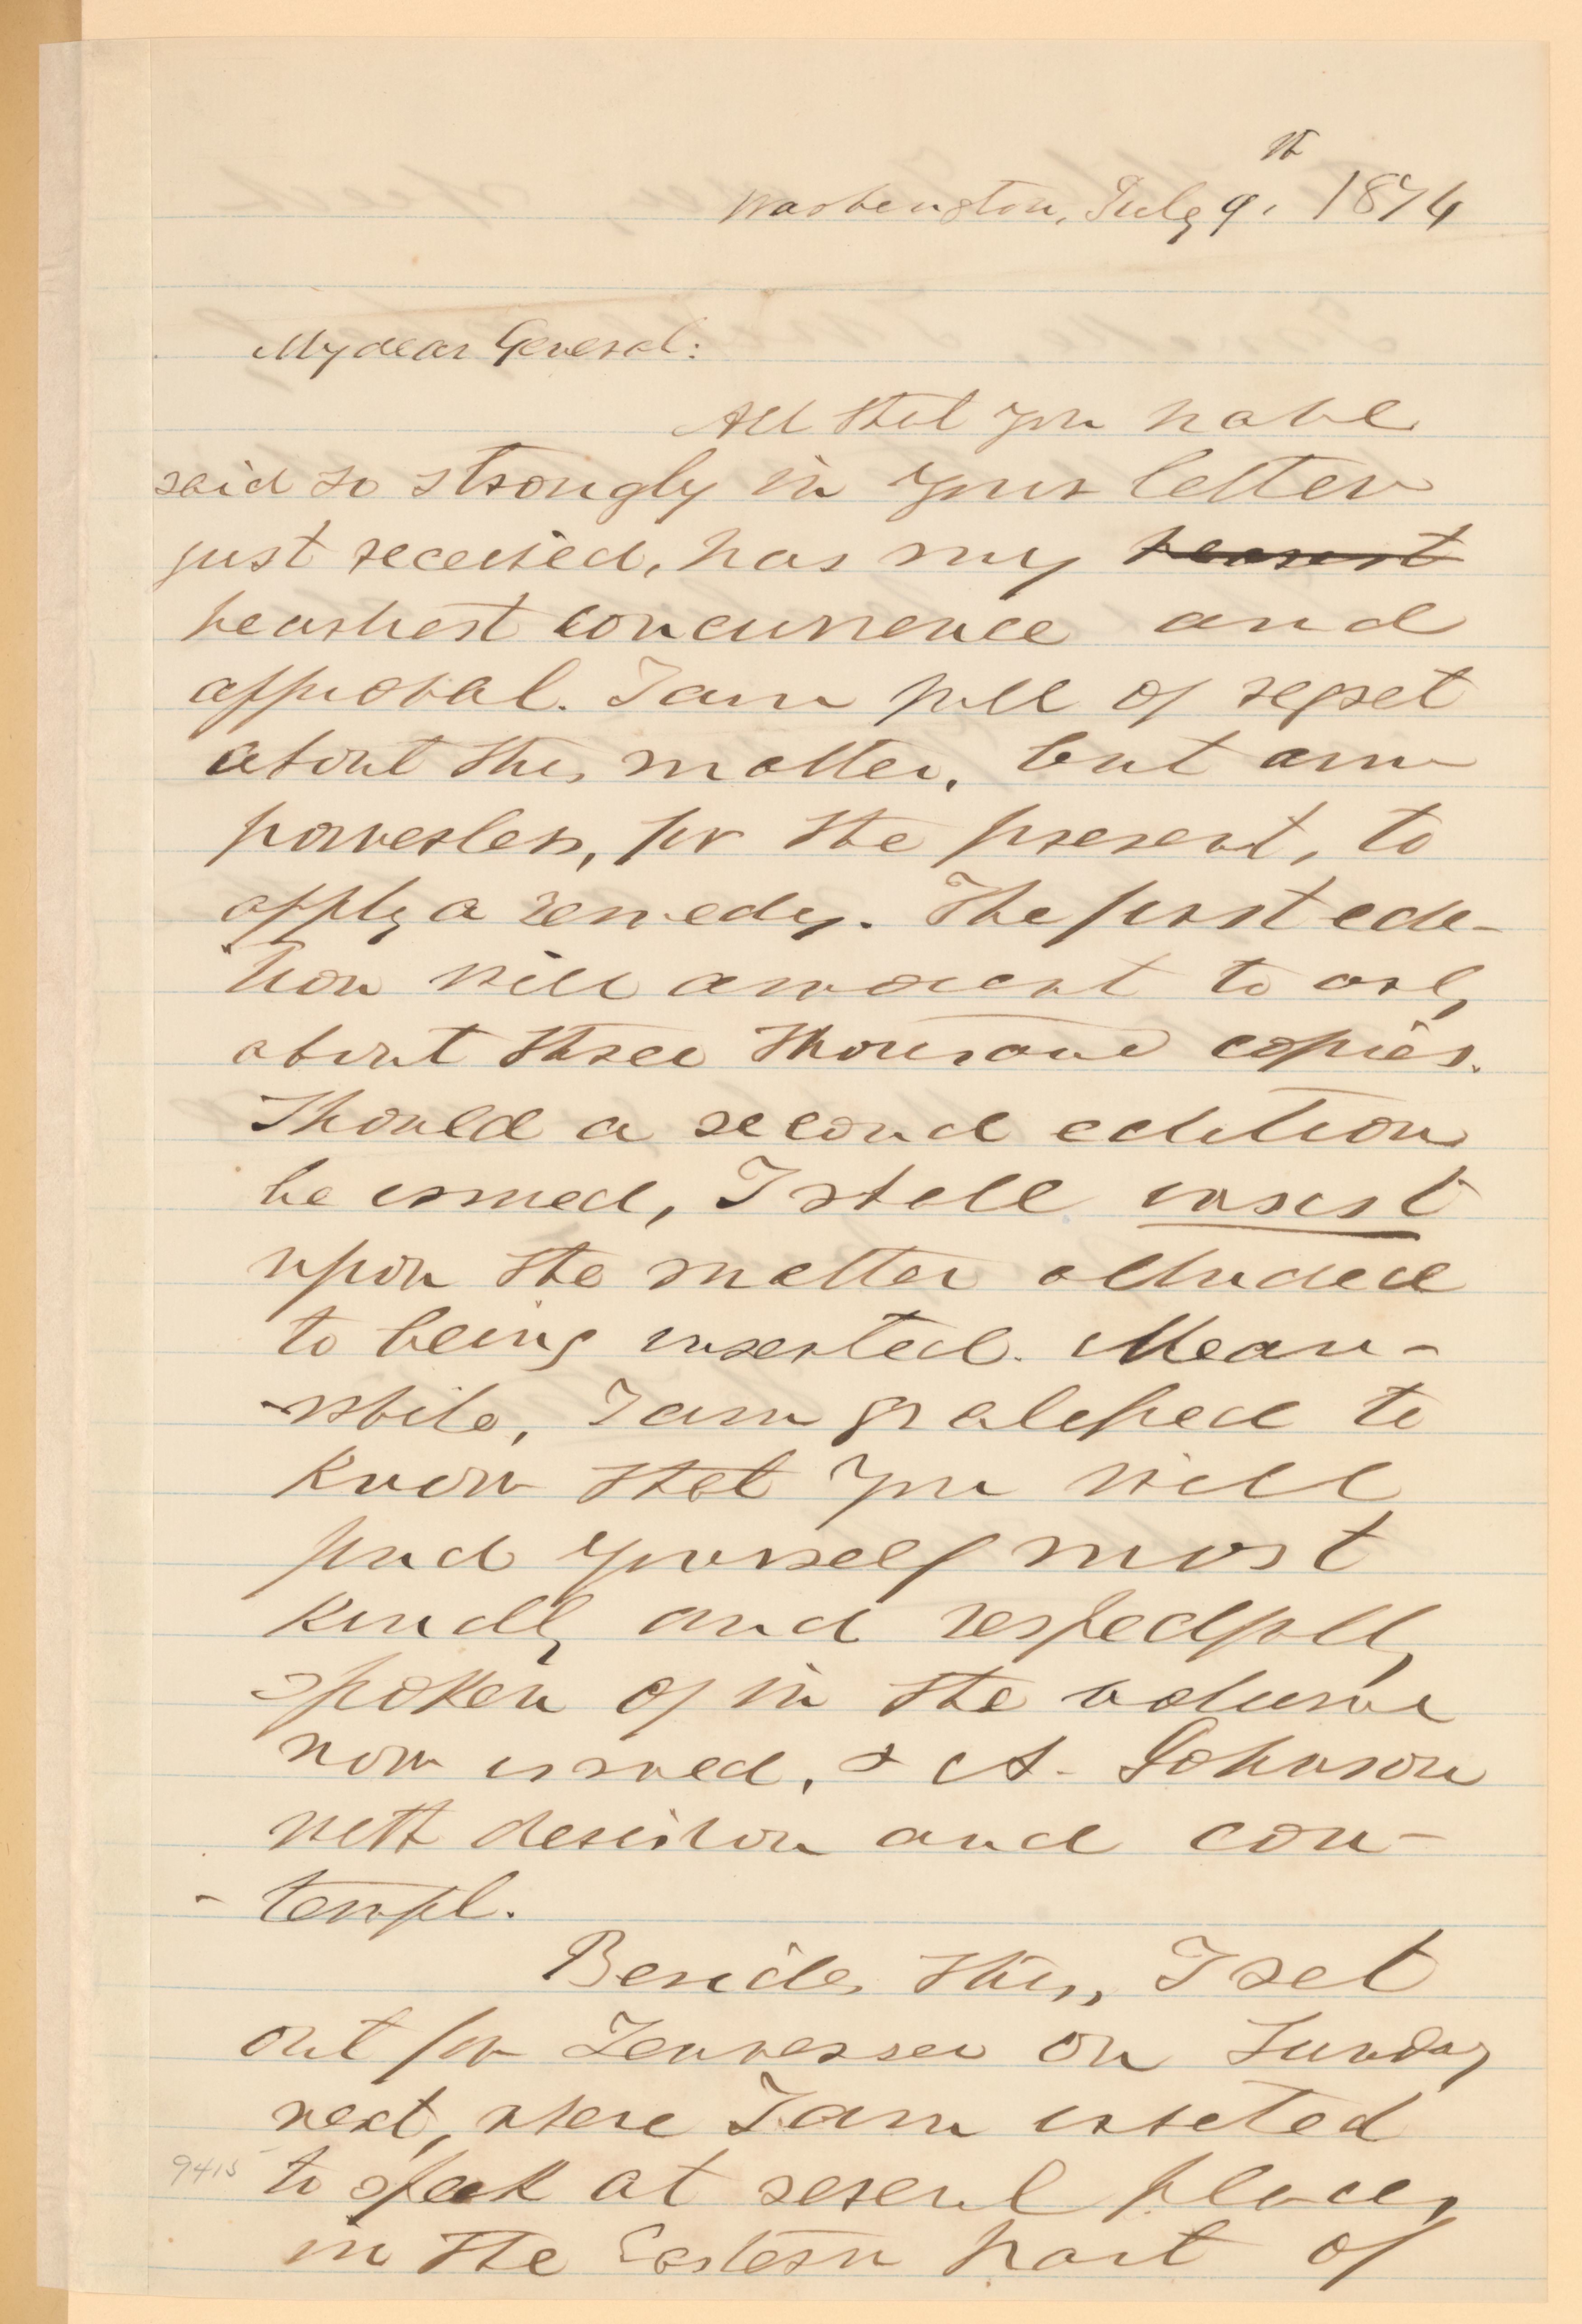 Washington, July 9th, 1874
My dear General:
All that you have
said so strongly in your letter
just received, has my
heartiest concurrence and
approval. I am full of regret
about this matter, but am
powerless, for the present, to
apply a remedy. The first edi-
tion will amount to only
about three thousand copies.
Should a second edition
be issued, I shall insist
upon the matter alluded
to being inserted. Mean-
-while, I am gratified to
know that you will
find yourself most
kindly and respectfully
spoken of in the volume
now issued, & A. Johnson
with derision and con-
-tempt.
Besides this, I set
out for Tennessee on Sunday
next, where I am invited
to speak at several places
in the Eastern part of
9415